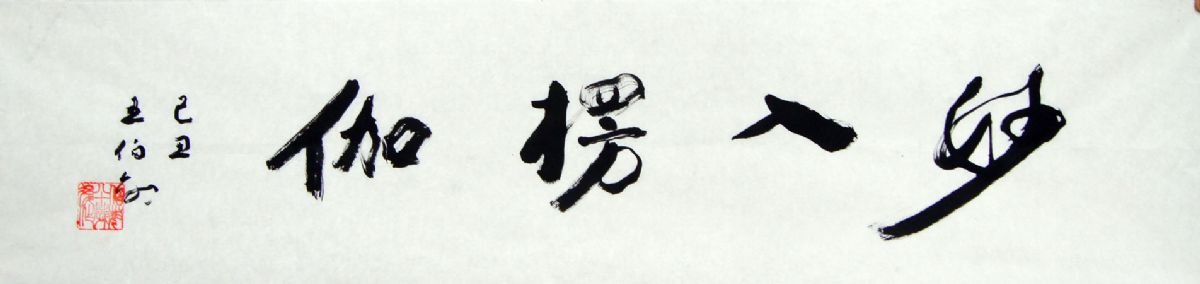 妙入楞伽
己丑
王伯敏